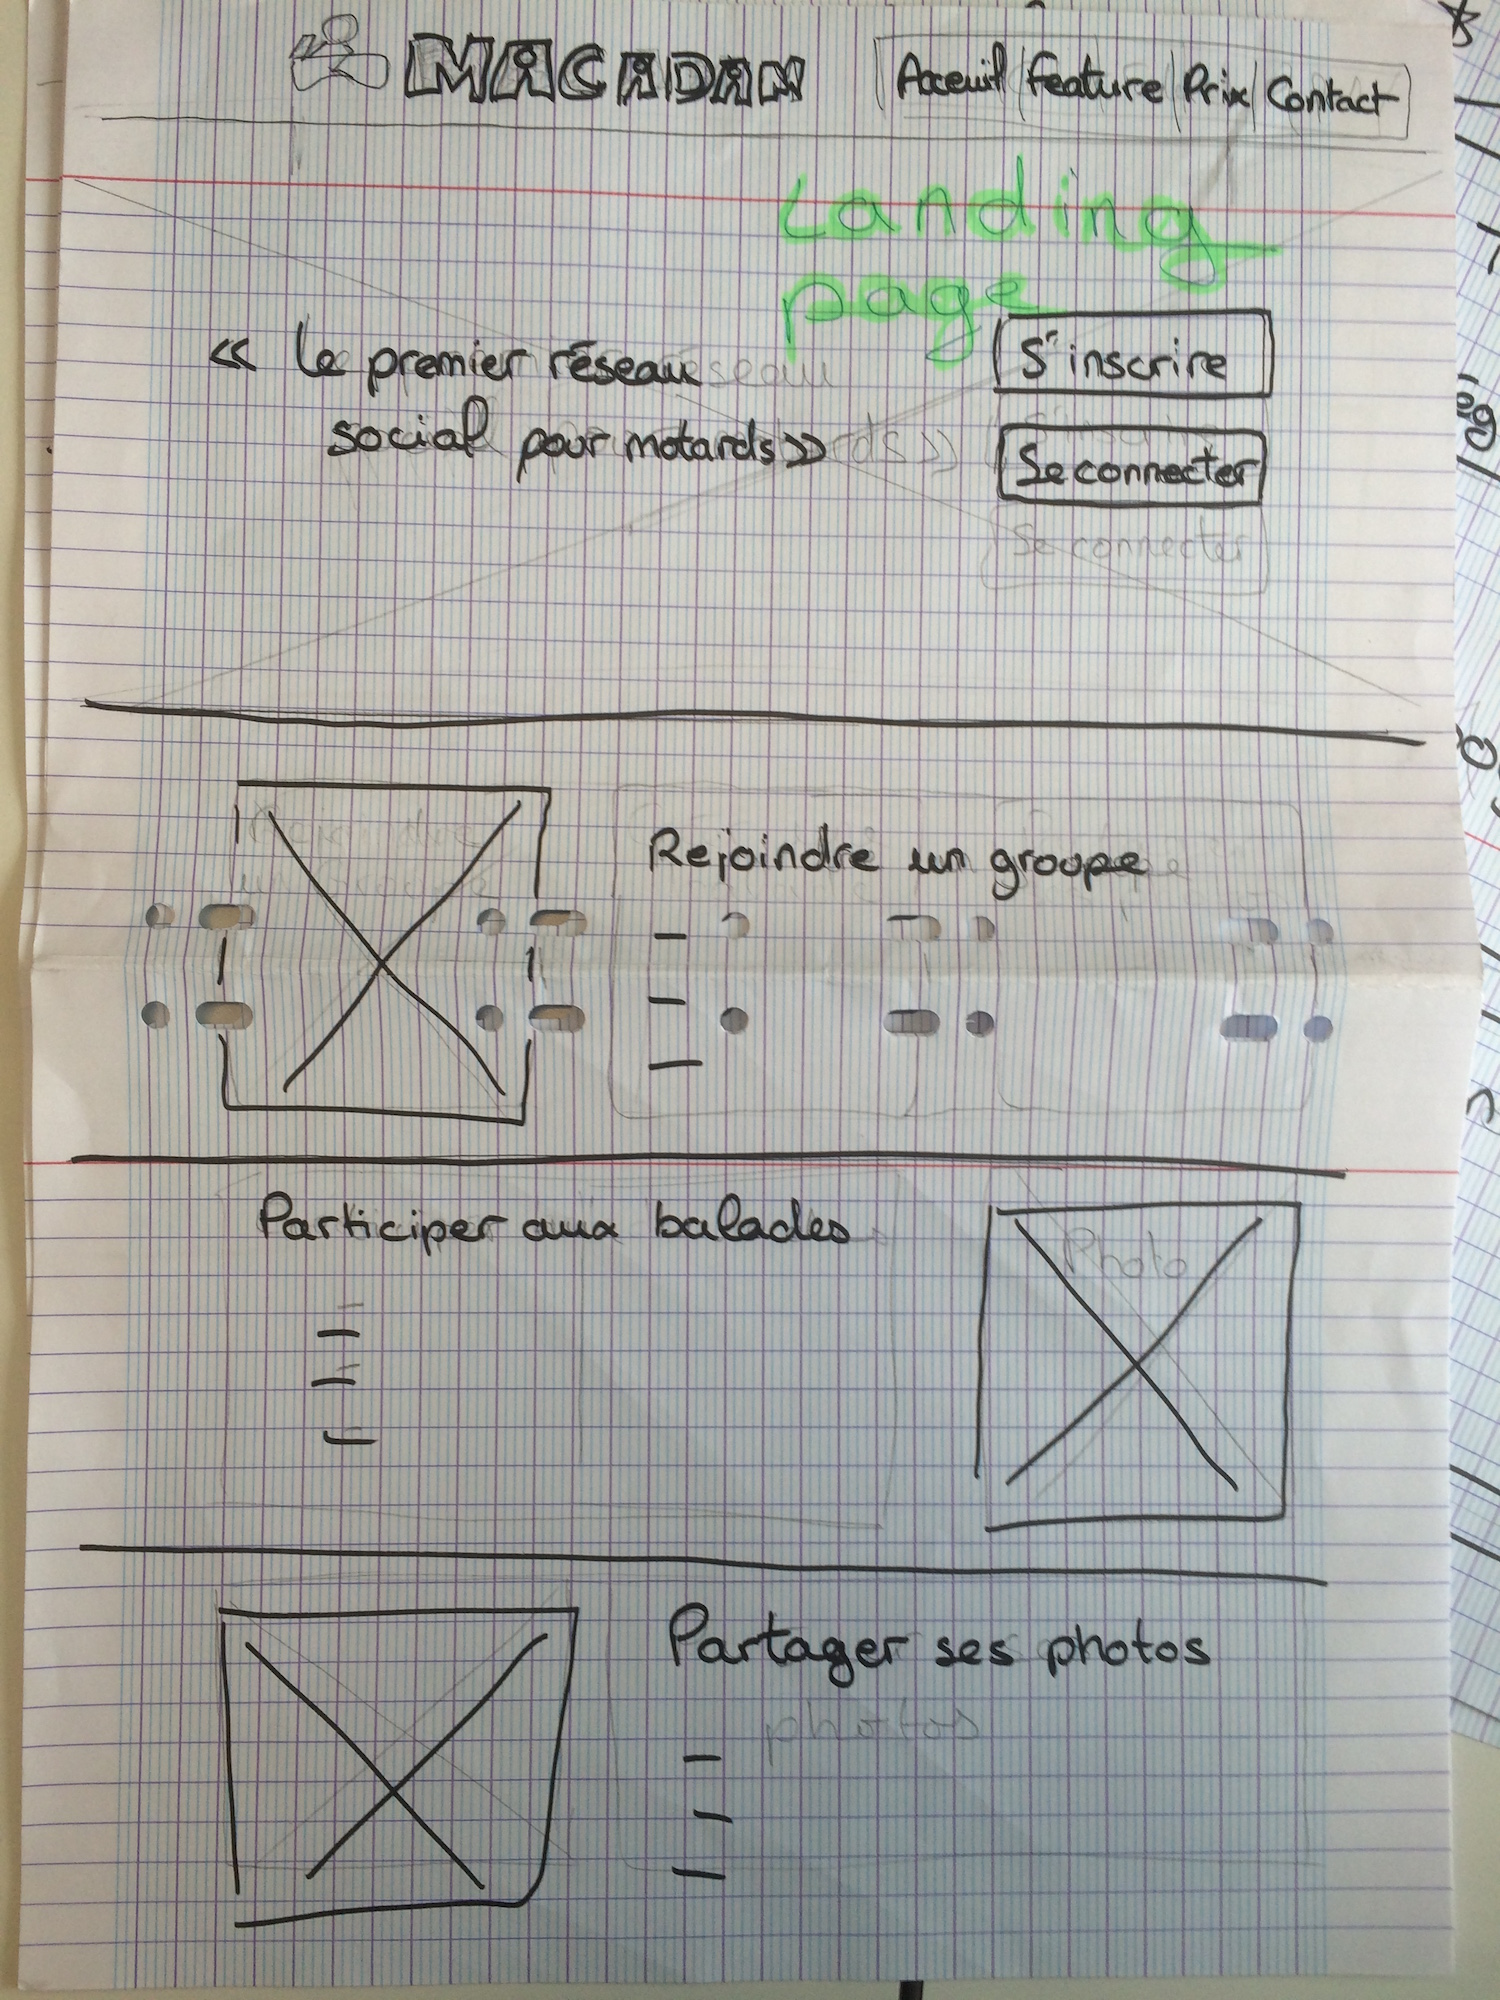 MACADAM
Acceuil Feature Prix Contact
Landing
page
« Le premier réseau
social pour motards »
S'inscrire
Se connecter
Se connecter
Rejoindre un groupe
Participer aux balades
Photo
Partager ses photos
photos